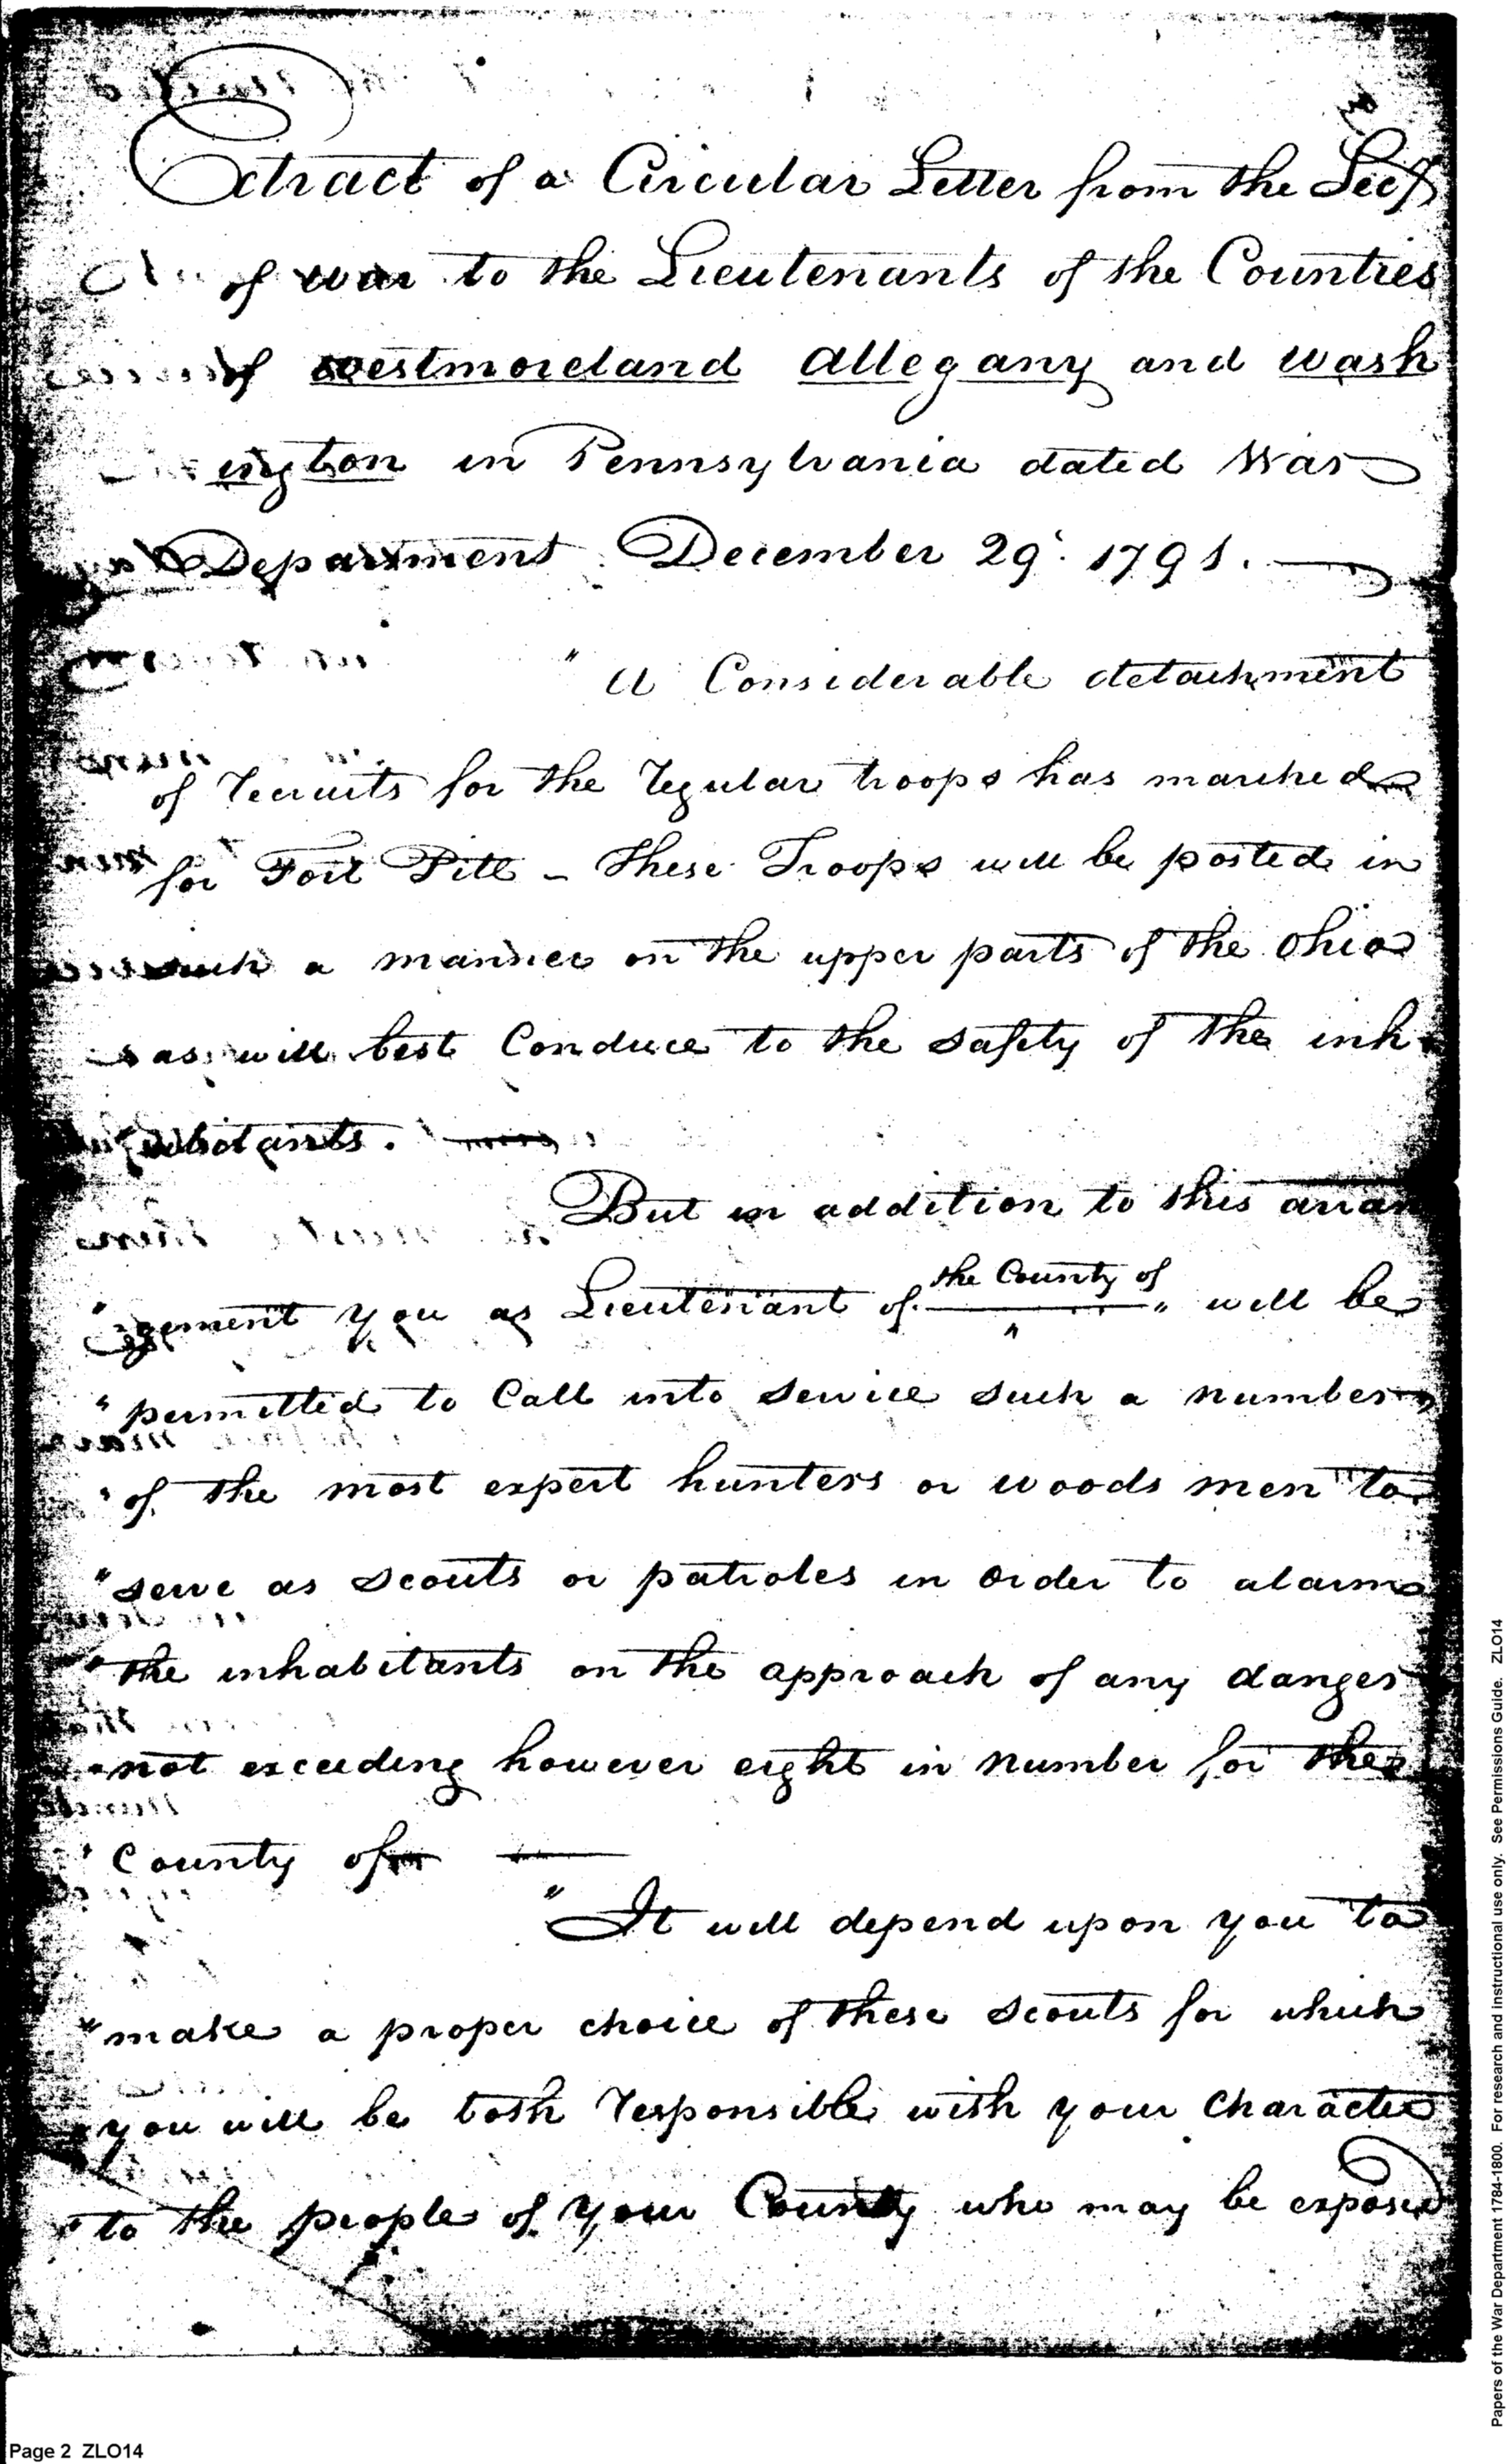 Extract of a Circular Letter from the Secy
of war to the Lieutenants of the Counties
of westmoreland Allegany and wash
ington in Pennsylvania dated War
Department December 29. 1791.
" A Considerable detachment
of recruits for the regular troops has marched
for Fort Pitt - These Troops will be posted in
such a manner on the upper parts of the Ohio
as will best Conduce to the safety of the inh
abitants.
But in addition to this arran
"gement you as Lieutenant of the County of " will be
" permitted to Call into service such a number
" of the most expert hunters or woods men to
" serve as scouts or patroles in order to alarm
" the inhabitants on the approach of any danger
" not exceeding however eight in number for the
" County of
" It will depend upon you to
" make a proper choice of these scouts for which
" you will be both responsible with your Character
" to the people of your County who may be exposed
Page 2 ZLO14
Papers of the War Department 1784-1800. For research and instructional use only. See Permissions Guide. ZLO14